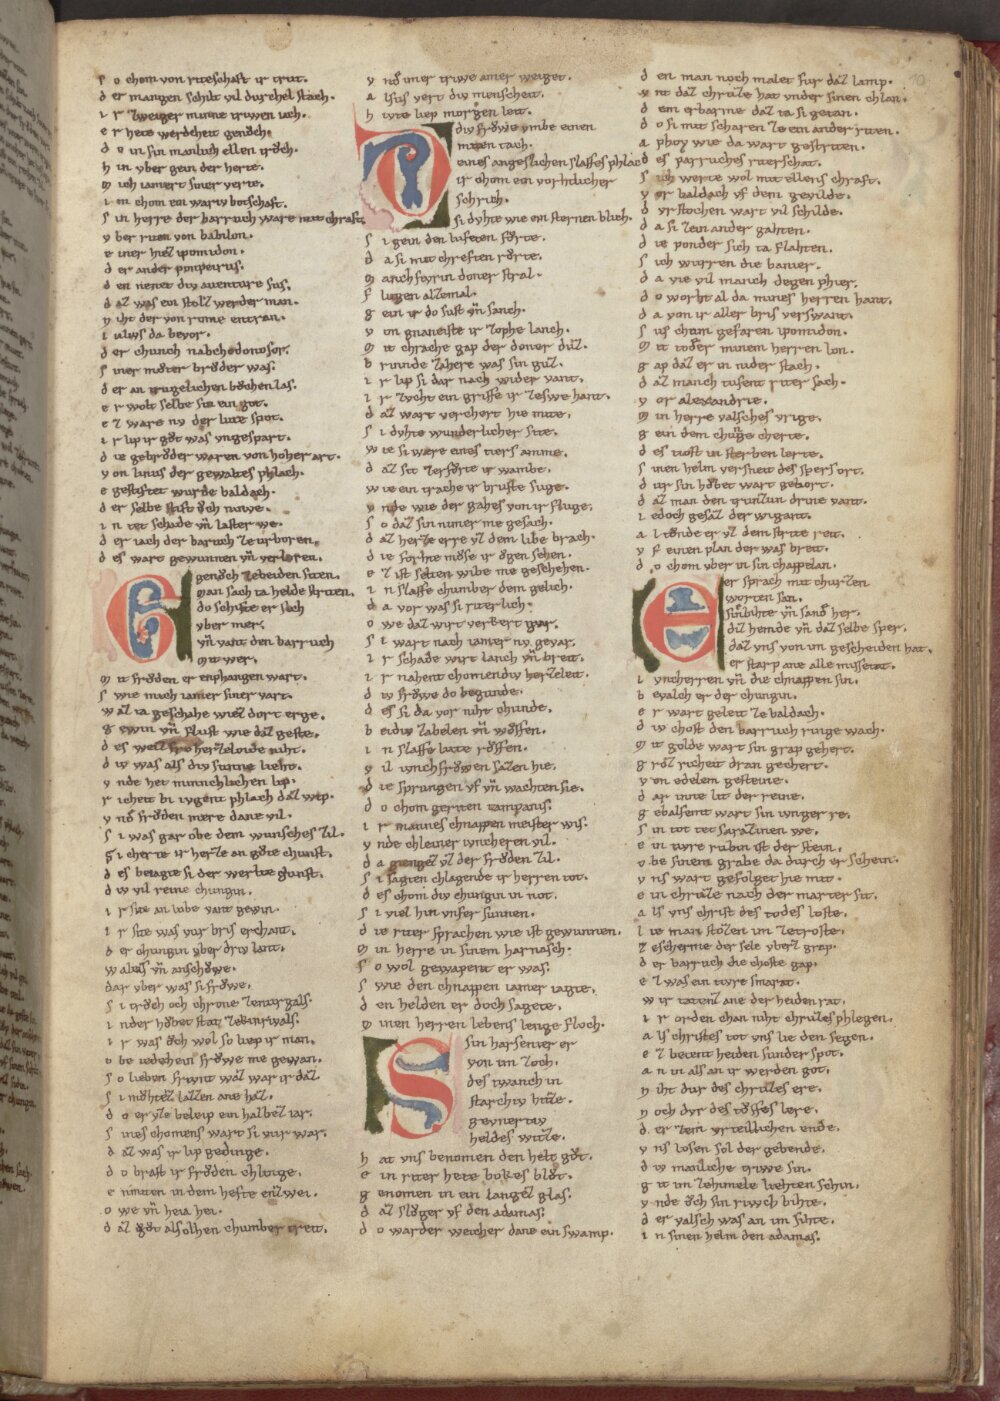 s o chom von riteschaft ir trut.
d er mangen schilt vil durchel stach.
i r zweiger minne triwen iach.
e r hete werdcheit genůch.
d o in sin manlich ellen trůch.
h in vber gein der herte.
m ich iamert siner verte.
i m chom ein wariv botschaft.
s in herre der barruch ware mit chraft
v ber riten von babilon.
e iner hiez ipomidon.
d er ander pompeirus.
d en nennet div aventure sus.
d az was ein stolz werder man.
n iht der von rome entran.
i ulivs da bevor.
d er chunch nabchodonosor.
s iner můter brůder was.
d er an trugelichen bůchen las.
e r wolt selbe sin ein got.
e z ware nv der lute spot.
i r lip ir gůt was vngespart.
d ie gebrůder waren von hoher art.
v on ninus der gewaltes phlach.
e gestiftet wurde baldach.
d er selbe stift ůch ninive.
i n tet schade vn̄ laster we.
d er iach der baruch ze vrboren.
d es wart gewunnen vn̄ verloren.
G genůch ze beiden siten.
man sach ta helde striten.
do schifte er sich
vber mer.
vn̄ vant den barruch
mit wer.
m it frůden er enphangen wart.
s wie mich iamer siner vart.
w az ta geschahe wiez dort erge.
g ewin vn̄ flust wie daz geste.
d es weiz fro herzeloide niht.
d iv was als div sunne lieht.
v nde het minnichlichen lip.
r icheit bi ivgent phlach daz wip.
v nd frůden mere dane vil.
s i was gar obe dem wunsches zil.
s i cherte ir herze an gůte chunst.
d es beiagte si der werlte gunst.
d iv vil reine chungin.
i r site an lobe vant gewin.
i r site was fur bris erchant.
d er chungin vber driv lant.
w aleis vn̄ anschůwe.
dar vber was si frůwe.
s i trůch och chrone ze nurgals.
i nder hůbet stat ze kinrivals.
i r was ůch wol so liep ir man.
o be iedehein frůwe me gewan.
s o lieben friunt waz war ir daz.
s i mohtez lazzen ane haz.
d o er vze beleip ein halbez iar.
s ines chomens wart si vur war.
d az was ir lip gedinge.
d o brast ir frůden chlinge.
e nmitten in dem hefte enzwei.
o we vn̄ heia hei.
d az gůt alsolhen chumber treit.
v nd imer triwe amer weiget.
a lsus vert div menscheit.
h ivte liep morgen leit.
D div frowe vmbe einen
miten tach.
eines angeslichen slaffes phlac
ir chom ein vorhtlicher
schrich.
si dvhte wie ein sternen blich.
s i gein den luften fůrte.
d a si mit chreften růrte.
m anch feyrin doner stral.
f lugen alzemal.
g ein ir do sust vn̄ sanch.
v on gnaneiste ir zophe lanch.
m it chrache gap der doner duz.
b runnde zahere was sin guz.
i r lip si dar nach wider vant.
i r zvcht ein griffe ir zeswe hant.
d az wart verchert hie mite.
s i dvhte wunderlicher site.
w ie si ware eines tiers amme.
d az sit zerfůrte ir wambe.
w ie ein trache ir bruste suge.
v nde wie der gahes von ir fluge.
s o daz si in nimer me gesach.
d az herze erre vz dem libe brach.
d ie forhte můse ir ogen sehen.
e z ist selten wibe me geschehen.
i n slaffe chumber dem gelich.
d a vor was si riterlich.
o we daz wirt verkert gar.
s i wart nach iamer nv gevar.
i r schade wirt lanch vn̄ breit.
i r nahent chomendiv herzeleit.
d iv frůwe do begunde.
d es si da vor niht chunde.
b eidiv zabelen vn̄ wůffen.
i n slaffe lute růffen.
v il ivnchfrowen sazen hie.
d ie sprungen vf vn̄ wachten sie.
d o chom geriten tampanis.
i r mannes chnappen meister wis.
v nde chleiner ivncheren vil.
d a giengez vz der frůden zil.
s i sagten chlagende ir herren tot.
d es chom div chungin in not.
s i viel hin vnser sunnen.
d ie riter sprachen wie ist gewunnen.
m in herre in sinem harnasch.
s o wol gewapent er was.
s wie den chnappen iamer iagte.
d en helden er doch sagete.
m inen herren lebens lenge floch.
S sin harsenier er
von im zoch.
des twanch in
starchiv hitze.
gevnertiv
heldes witze.
h at vns benomen den helt gůt.
e in riter hete bokes blůt.
g enomen in ein langez glas.
d az slůger vf den adamas.
d o warder weicher dane ein swamp.
d en man noch malet fur daz lamp.
v nt daz chruze hat vnder sinen chlan.
d em erbarme daz ta si getan.
d o si mit scharen ze ein ander riten.
a phoy wie da wart gestriten.
d es parruches riterschat.
s ich werte wol mit ellens chraft.
v or baldach vf dem gevilde.
d vrstochen wart vil schilde.
d a si zein ander gahten.
d ie ponder sich ta flahten.
s ich wurren die banier.
d a vie vil manch degen phier.
d o worht al da mines herren hant.
d a von ir aller bris verswant.
s us chom gefaren ipomidon.
m it toder minem herren lon.
g ap daz er in nider stach.
d az manch tusent riter sach.
v or alexandrie.
m in herre valsches vrige.
g ein dem chůnge cherte.
d es tiost in sterben lerte.
s inen helm versneit des spers ort.
d ur sin hůbet wart gebort.
d az man den trunzun drine vant.
i edoch gesaz der wigant.
a l tǒnde er vz dem strite reit.
v f einen plan der was breit.
d o chom vber in sin chappelan.
E er sprach mit churzen
worten san.
sin bihte vn̄ sand her.
diz hemde vn̄ daz selbe sper.
daz vns von im gescheiden hat.
er starp ane alle missetat.
i vncherren vn̄ die chnappen sin.
b evalch er der chungin.
e r wart geleit ze baldach.
d iv chost den barruch ringe wach.
m it golde wart sin grap gehert.
g roz richeit dran gechert.
v on edelem gesteine.
d ar inne lit der reine.
g ebalsemt wart sin ivnger re.
s in tot tet sarazinen we.
e in tivre rubin ist der stein.
o be sinem grabe da durch er schein.
v ns wart gefolget hie mit.
e in chruze nach der marter sit.
a ls vns christ des todes loste.
l ie man stozen im ze troste.
z e scherme der sele vberz grap.
d er barruch die choste gap.
e z was ein tivre smarat.
w ir tatenz ane der heiden rat.
i r orden chan niht chruzes phlegen.
a ls christes tot vns lie den segen.
e z betent heiden sunder spot.
a n in als an ir werden got.
n iht dur des chruzes ere.
n och dvr des tǒffes lere.
d er zem vrteillichen ende.
v ns losen sol der gebende.
d iv manliche triwe sin.
g it im zehimele liehten schin.
v nde ůch sin riwch bihte.
d er valsch was an im sihte.
i n sinen helm den adamas.
10